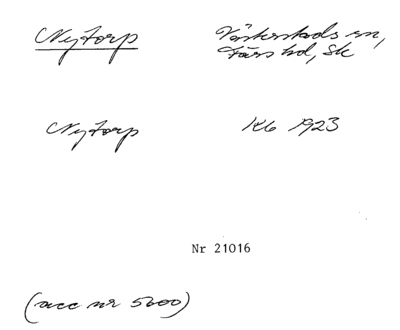 Nytorp
Västerstads sn,
Färs hd, Sk
Nytorp
Kb 1923
Nr 21016
(acc nr 5600)